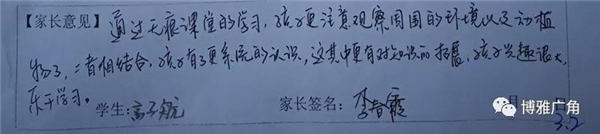 【家长意见】通过无痕课堂的学习，孩子更注意观察周围的环境以及动植
物了，二者相结合，孩子有了更系统的认识，这其中更有对知识的拓展，孩子兴趣很大，
乐于学习。
学生：高子航 家长签名：李春霞 月
3.2
博雅广角